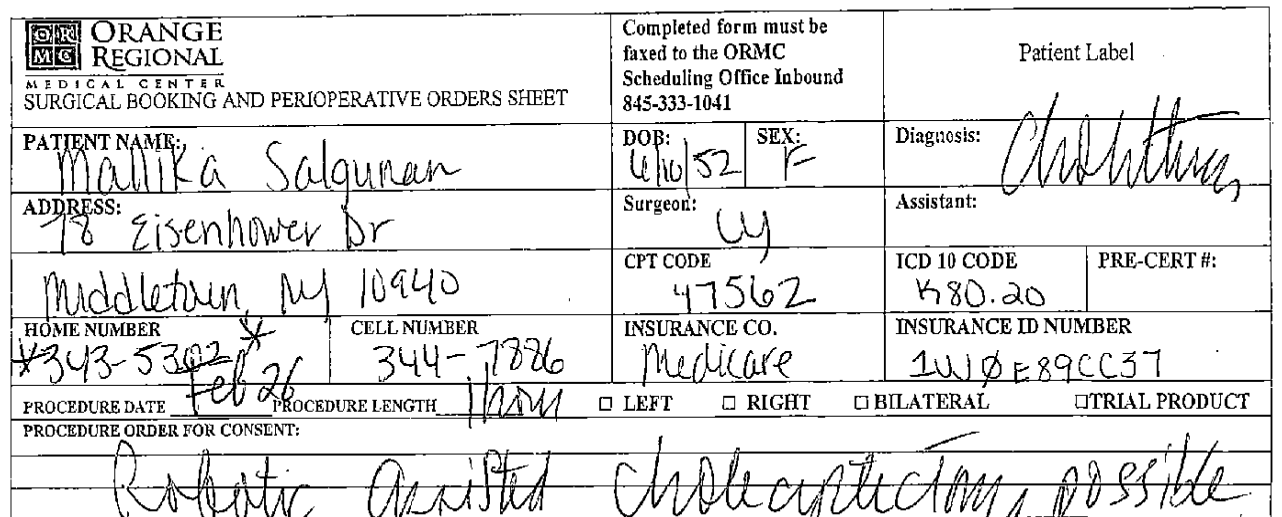 ORMC ORANGE REGIONAL
MEDICAL CENTER
SURGICAL BOOKING AND PERIOPERATIVE ORDERS SHEET
Completed form must be
faxed to the ORMC
Scheduling Office Inbound
845-333-1041
Patient Label
PATIENT NAME: Mallika Salgunan
DOB: 6/10/52
SEX: F
Diagnosis:
ADDRESS: 78 Eisenhower Dr
Surgeon:
Assistant:
Middletown, NY 10940
CPT CODE 47562
ICD 10 CODE K80.20
PRE-CERT #:
HOME NUMBER *343-5302*
CELL NUMBER 344-7886
INSURANCE CO. Medicare
INSURANCE ID NUMBER 1WØE89CC37
PROCEDURE DATE Feb 26 PROCEDURE LENGTH 1 hour □ LEFT □ RIGHT □ BILATERAL □ TRIAL PRODUCT
PROCEDURE ORDER FOR CONSENT:
Robotic assisted cholecystectomy, possible